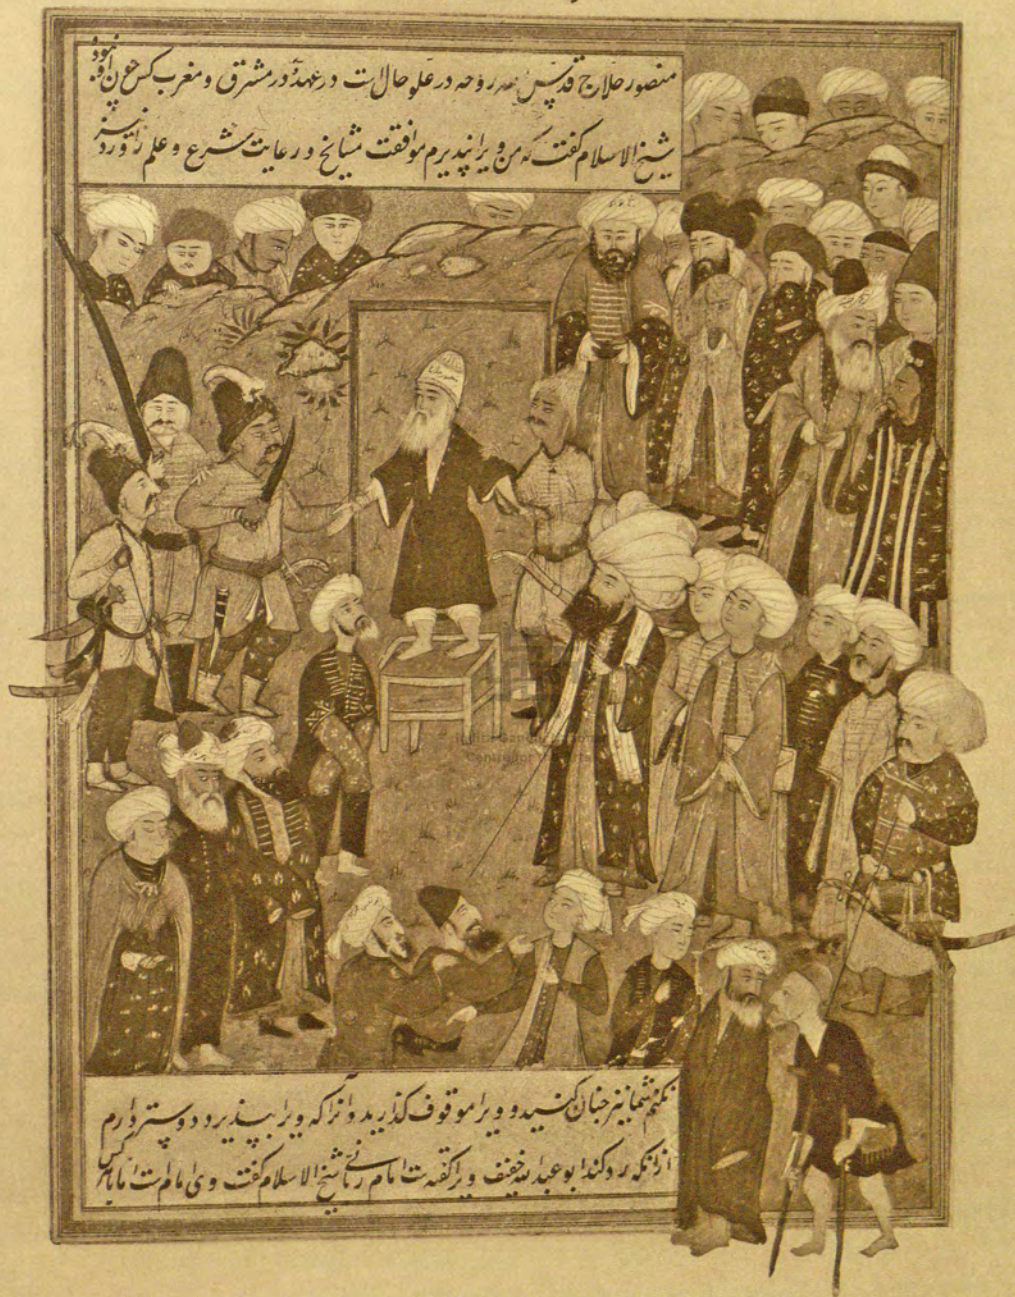 منصور حلاج قدس الله روحه در علو حال است در عهد او در مشرق و مغرب کس چون او نبود
شیخ الاسلام گفت که من ویرا نپذیرم موافقت مشایخ و رعایت شرع و علم را و رد نیز
نکنم شما نیز چنان کنید و ویرا موقوف گذارید و آنرا که ویرا بپذیرد دوستر دارم
از آنکه رد کند ابو عبدالله خفیف ویرا گفته است امام ربانی شیخ الاسلام گفت وی امام است اما با هر کس
Centre for the Arts